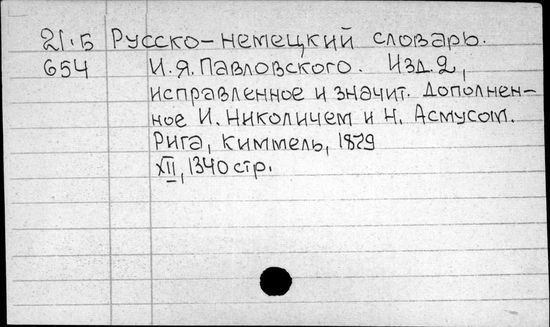 21.Б Русско-немецкий словарь.
654 И.Я.Павловского. Изд.2,
исправленное и значит. дополнен-
ное И. Николичем и Н. Асмусом.
Рига, Киммель, 1879
XII, 1340 стр.